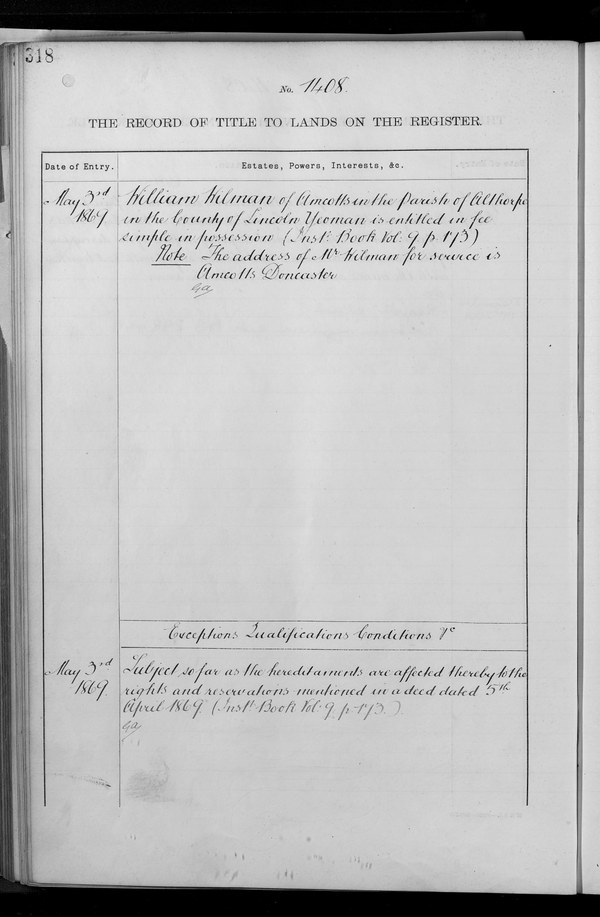 318
No. 1408.
THE RECORD OF TITLE TO LANDS ON THE REGISTER.
Date of Entry.
Estates, Powers, Interests, &c.
May 3rd
1869
William Kilman of Amcotts in the Parish of Althorpe
in the County of Lincoln Yeoman is entitled in fee
simple in possession (Inst. Book Vol. 9 p. 173)
Note The address of Mr Kilman for service is
Amcotts Doncaster
Exceptions Qualifications Conditions &c
May 3rd
1869
Subject so far as the hereditaments are affected thereby to the
rights and reservations mentioned in a deed dated 5th
April 1869 (Inst. Book Vol. 9 p. 173.)